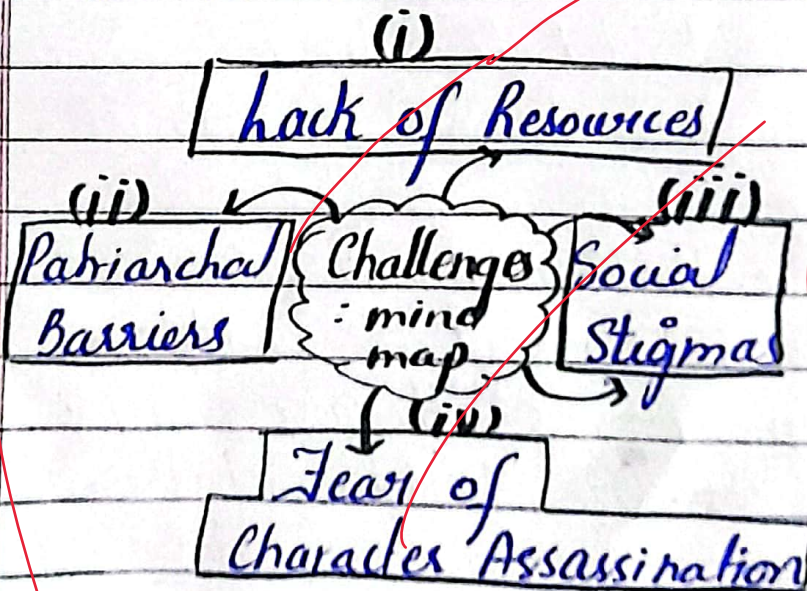 (i)
Lack of Resources
(ii)
Patriarchal
Barriers
Challenges
: mind
map
(iii)
Social
Stigmas
(iv)
Fear of
Character Assassination